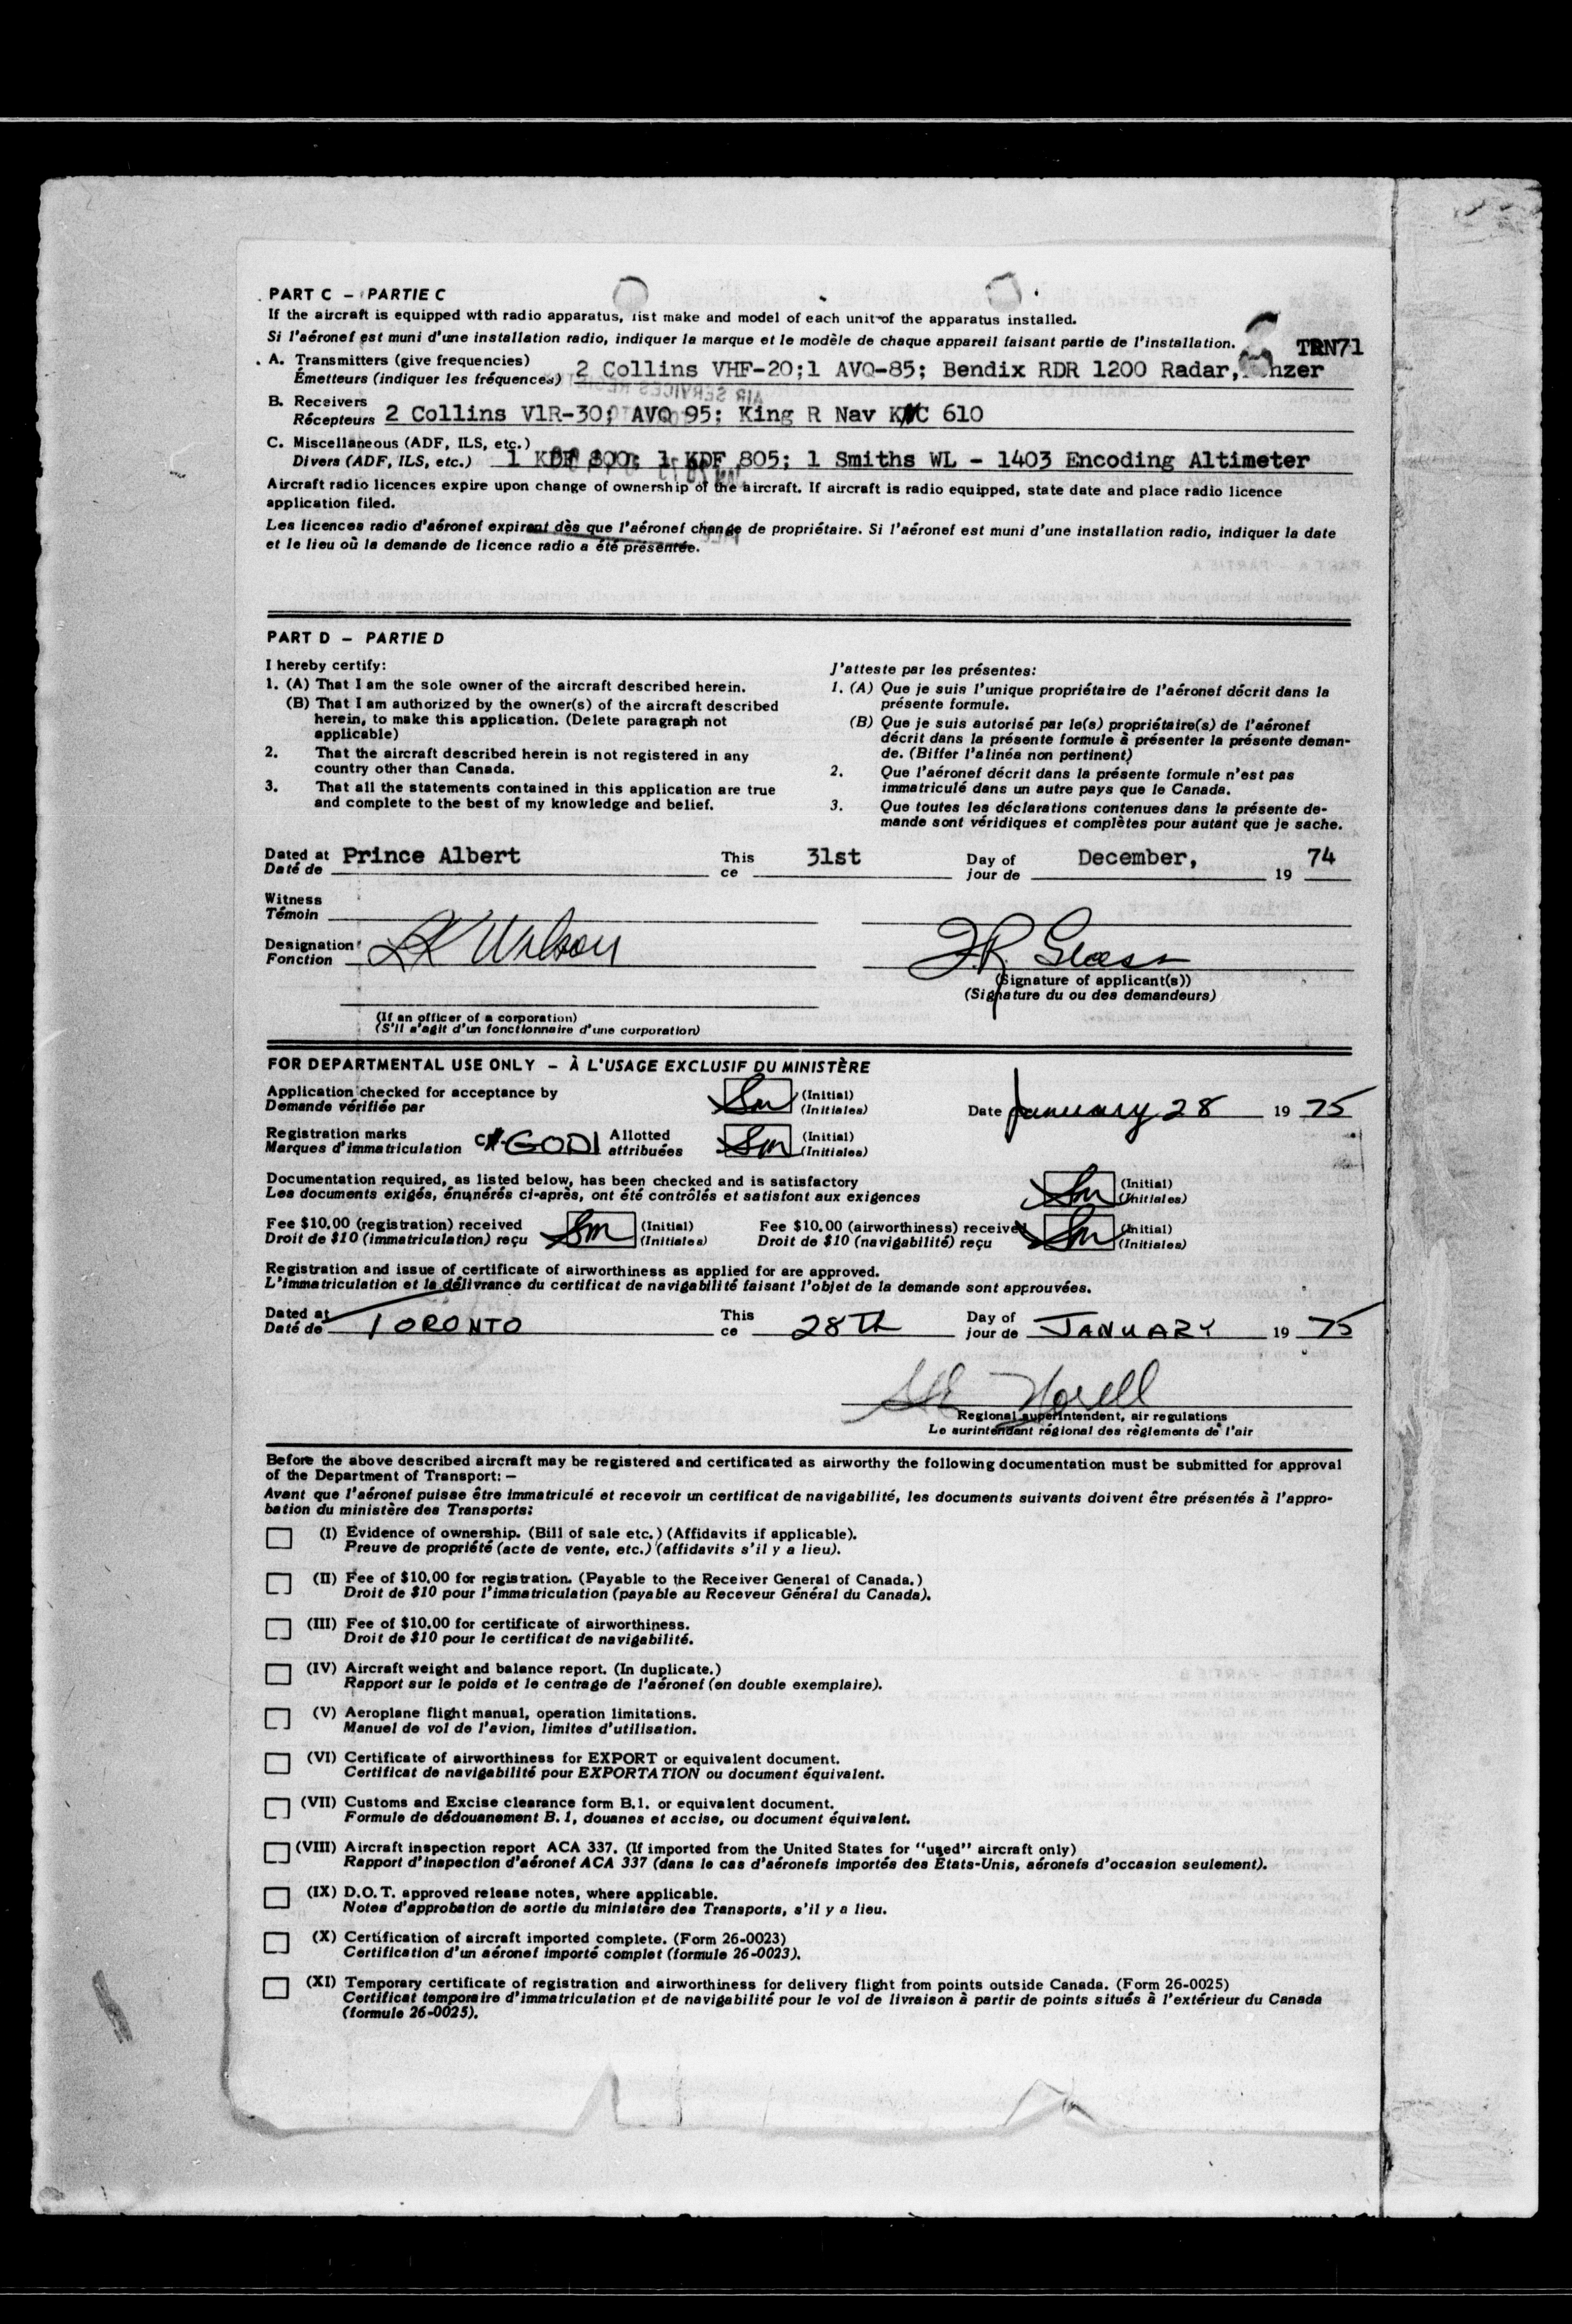 PART C – PARTIE C
If the aircraft is equipped with radio apparatus, list make and model of each unit of the apparatus installed.
Si l'aéronef est muni d'une installation radio, indiquer la marque et le modèle de chaque appareil faisant partie de l'installation.
TRN71
A. Transmitters (give frequencies)
Émetteurs (indiquer les fréquences) 2 Collins VHF-20;1 AVQ-85; Bendix RDR 1200 Radar,
B. Receivers
Récepteurs 2 Collins V1R-30; AVQ 95; King R Nav KNC 610
C. Miscellaneous (ADF, ILS, etc.)
Divers (ADF, ILS, etc.) 1 KDF 800; 1 KDF 805; 1 Smiths WL - 1403 Encoding Altimeter
Aircraft radio licences expire upon change of ownership of the aircraft. If aircraft is radio equipped, state date and place radio licence
application filed.
Les licences radio d'aéronef expirent dès que l'aéronef change de propriétaire. Si l'aéronef est muni d'une installation radio, indiquer la date
et le lieu où la demande de licence radio a été présentée.
PART D – PARTIE D
I hereby certify:
1. (A) That I am the sole owner of the aircraft described herein.
(B) That I am authorized by the owner(s) of the aircraft described
herein, to make this application. (Delete paragraph not
applicable)
2. That the aircraft described herein is not registered in any
country other than Canada.
3. That all the statements contained in this application are true
and complete to the best of my knowledge and belief.
J'atteste par les présentes:
1. (A) Que je suis l'unique propriétaire de l'aéronef décrit dans la
présente formule.
(B) Que je suis autorisé par le(s) propriétaire(s) de l'aéronef
décrit dans la présente formule à présenter la présente deman-
de. (Biffer l'alinéa non pertinent)
2. Que l'aéronef décrit dans la présente formule n'est pas
immatriculé dans un autre pays que le Canada.
3. Que toutes les déclarations contenues dans la présente de-
mande sont véridiques et complètes pour autant que je sache.
Dated at Prince Albert This 31st Day of December, 74
Daté de ce jour de 19
Witness
Témoin
Designation
Fonction
LK Wilson
JR Glass
(Signature of applicant(s))
(Signature du ou des demandeurs)
(If an officer of a corporation)
(S'il s'agit d'un fonctionnaire d'une corporation)
FOR DEPARTMENTAL USE ONLY – À L'USAGE EXCLUSIF DU MINISTÈRE
Application checked for acceptance by Sm (Initial)
Demande vérifiée par (Initiales) Date January 28 19 75
Registration marks C-GODI Allotted Sm (Initial)
Marques d'immatriculation attribuées (Initiales)
Documentation required, as listed below, has been checked and is satisfactory Sm (Initial)
Les documents exigés, énumérés ci-après, ont été contrôlés et satisfont aux exigences (Initiales)
Fee $10.00 (registration) received Sm (Initial) Fee $10.00 (airworthiness) received Sm (Initial)
Droit de $10 (immatriculation) reçu (Initiales) Droit de $10 (navigabilité) reçu (Initiales)
Registration and issue of certificate of airworthiness as applied for are approved.
L'immatriculation et la délivrance du certificat de navigabilité faisant l'objet de la demande sont approuvées.
Dated at TORONTO This 28Th Day of JANUARY 19 75
Daté de ce jour de
Regional superintendent, air regulations
Le surintendant régional des règlements de l'air
Before the above described aircraft may be registered and certificated as airworthy the following documentation must be submitted for approval
of the Department of Transport: –
Avant que l'aéronef puisse être immatriculé et recevoir un certificat de navigabilité, les documents suivants doivent être présentés à l'appro-
bation du ministère des Transports:
(I) Evidence of ownership. (Bill of sale etc.) (Affidavits if applicable).
Preuve de propriété (acte de vente, etc.) (affidavits s'il y a lieu).
(II) Fee of $10.00 for registration. (Payable to the Receiver General of Canada.)
Droit de $10 pour l'immatriculation (payable au Receveur Général du Canada).
(III) Fee of $10.00 for certificate of airworthiness.
Droit de $10 pour le certificat de navigabilité.
(IV) Aircraft weight and balance report. (In duplicate.)
Rapport sur le poids et le centrage de l'aéronef (en double exemplaire).
(V) Aeroplane flight manual, operation limitations.
Manuel de vol de l'avion, limites d'utilisation.
(VI) Certificate of airworthiness for EXPORT or equivalent document.
Certificat de navigabilité pour EXPORTATION ou document équivalent.
(VII) Customs and Excise clearance form B.1. or equivalent document.
Formule de dédouanement B.1, douanes et accise, ou document équivalent.
(VIII) Aircraft inspection report ACA 337. (If imported from the United States for "used" aircraft only)
Rapport d'inspection d'aéronef ACA 337 (dans le cas d'aéronefs importés des États-Unis, aéronefs d'occasion seulement).
(IX) D.O.T. approved release notes, where applicable.
Notes d'approbation de sortie du ministère des Transports, s'il y a lieu.
(X) Certification of aircraft imported complete. (Form 26-0023)
Certification d'un aéronef importé complet (formule 26-0023).
(XI) Temporary certificate of registration and airworthiness for delivery flight from points outside Canada. (Form 26-0025)
Certificat temporaire d'immatriculation et de navigabilité pour le vol de livraison à partir de points situés à l'extérieur du Canada
(formule 26-0025).